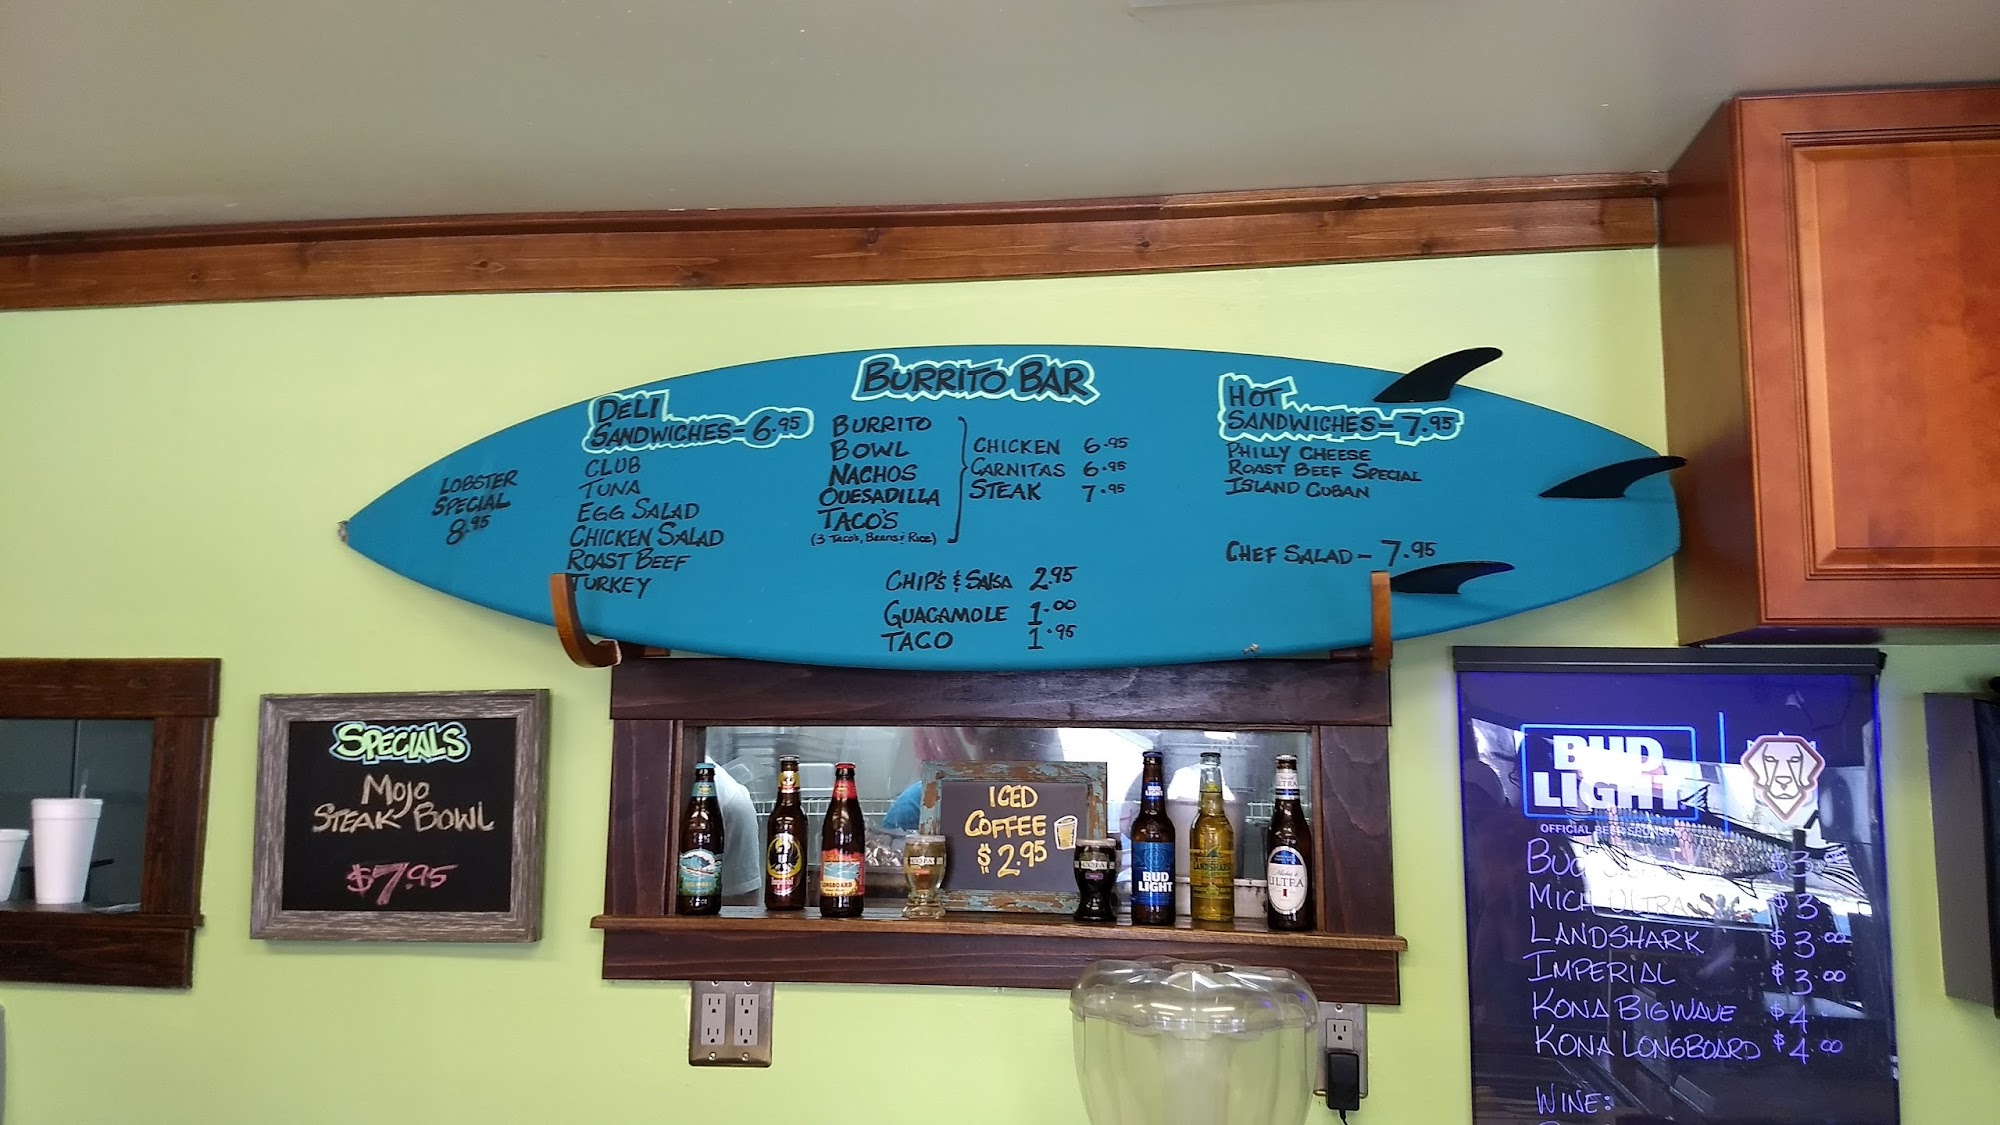 LOBSTER
SPECIAL
8.95
DELI
SANDWICHES- 6.95
CLUB
TUNA
EGG SALAD
CHICKEN SALAD
ROAST BEEF
TURKEY
BURRITO BAR
BURRITO
BOWL
NACHOS
QUESADILLA
TACO'S
(3 Taco's, Beans & Rice)
CHICKEN 6.95
CARNITAS 6.95
STEAK 7.95
CHIP'S & SALSA 2.95
GUACAMOLE 1.00
TACO 1.95
HOT
SANDWICHES- 7.95
PHILLY CHEESE
ROAST BEEF SPECIAL
ISLAND CUBAN
CHEF SALAD - 7.95
SPECIALS
MOJO
STEAK BOWL
$7.95
ICED
COFFEE
$2.95
LONGBOARD
Imperial
BUD
LIGHT
BUD
LIGHT
ULTRA
BUD
LIGHT
OFFICIAL BEER SPONSOR
BUD $3
MICH ULTRA $3
LANDSHARK $3.00
IMPERIAL $3.00
KONA BIGWAVE $4
KONA LONGBOARD $4.00
WINE: